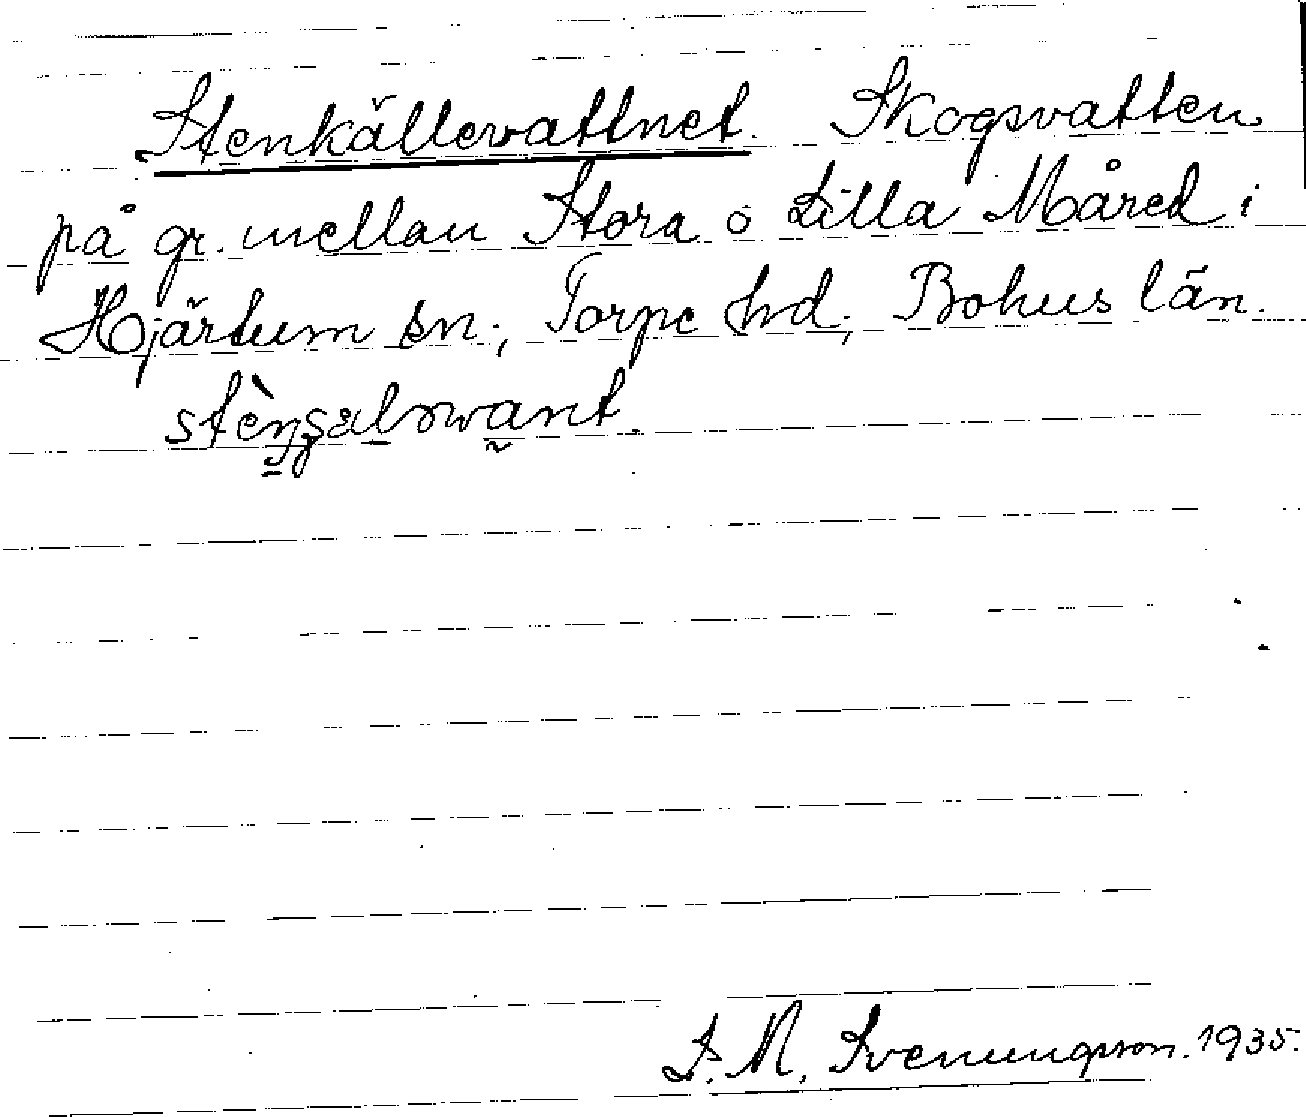 Stenkällevattnet. Skogsvatten
på gr. mellan Stora o Lilla Måred i
Hjärtum sn., Torpe hd., Bohus län.
J. M. Svenungson. 1935.